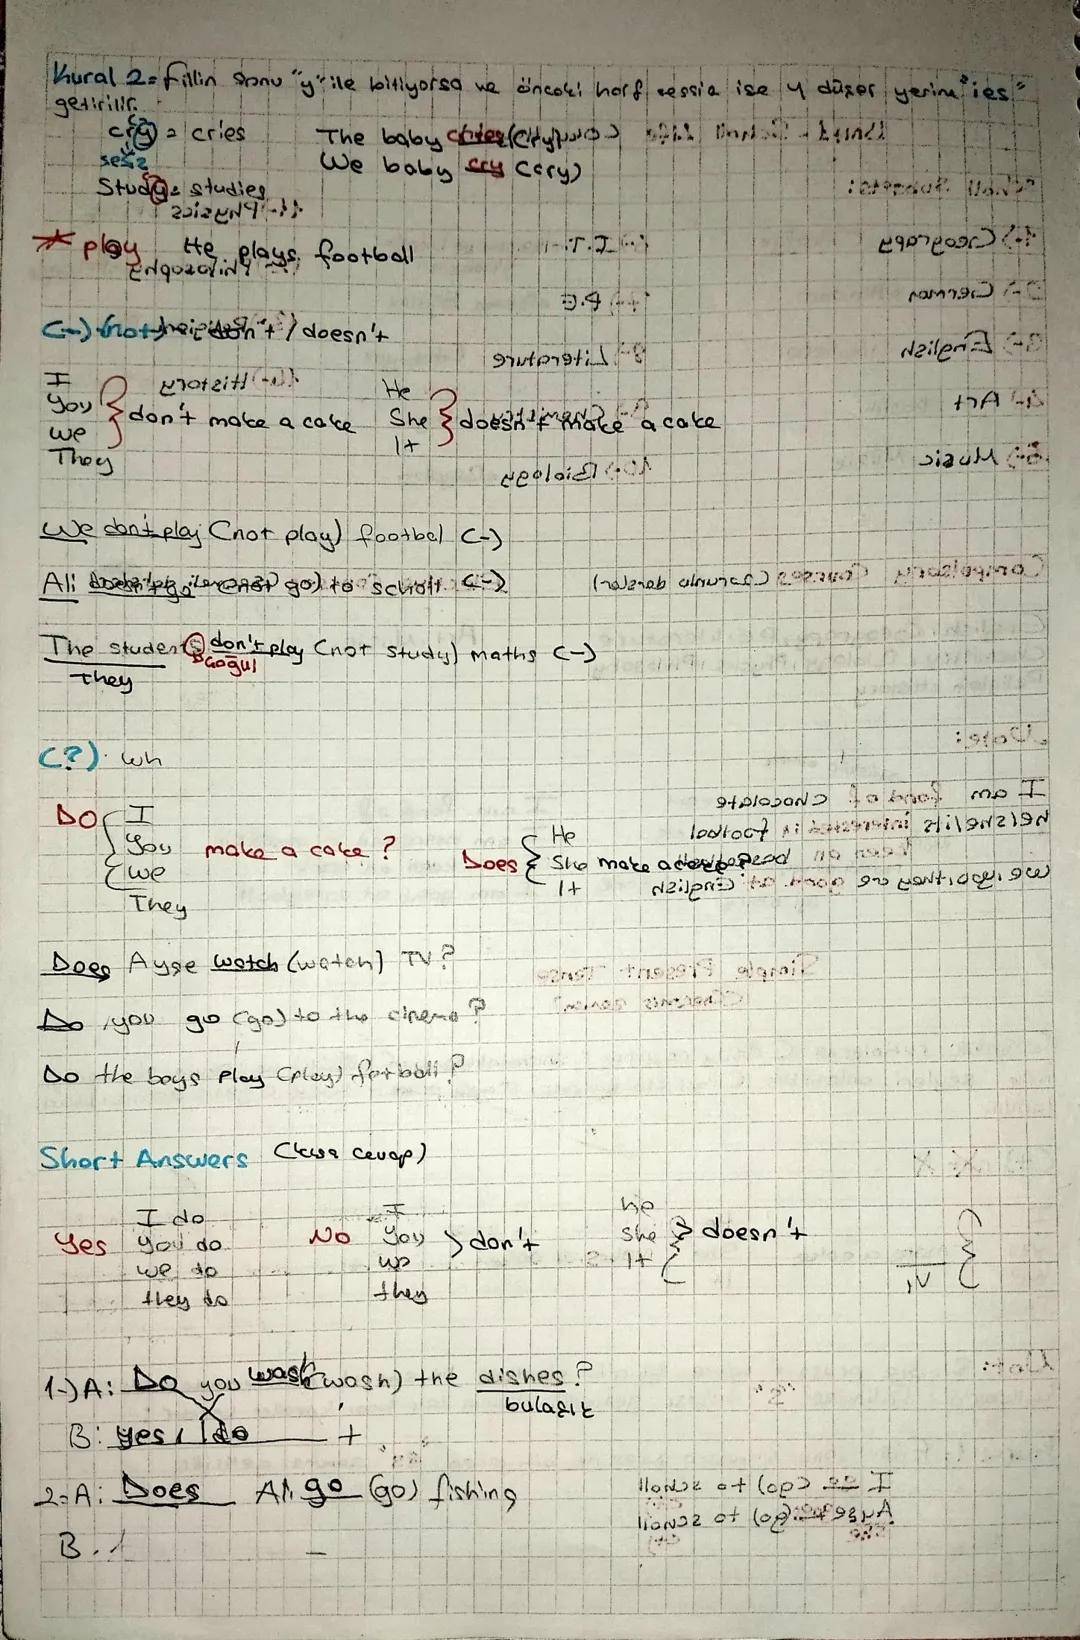 Kural 2= fillin sonu "y" ile bitiyorsa ve önceki harf sessiz ise y düşer yerine "ies"
getirilir.
cry = cries The baby cries (cry)
sesiz We baby cry (cry)
Study = studies
* play He plays football
(-) (not) = don't / doesn't
I
You
we
They
} don't make a cake
He
She
It
} doesn't make a cake
We don't play (not play) footbal (-)
Ali doesn't go (not go) to scholl (-)
The students don't play (not study) maths (-)
They
Çoğul
(?) wh
DO
{ I
You
we
They
make a cake ?
Does
{ He
She
It
make a cake ?
Does Ayşe watch (watch) TV?
Do you go (go) to the cinema?
Do the boys play (play) football?
Short Answers (kısa cevap)
Yes
I do
You do
we do
they do
No
I
You
we
they
} don't
he
she
It
} doesn't
1-) A: Do you wash (wash) the dishes?
bulaşık
B: yes, I do +
2= A: Does Ali go (go) fishing
B: -